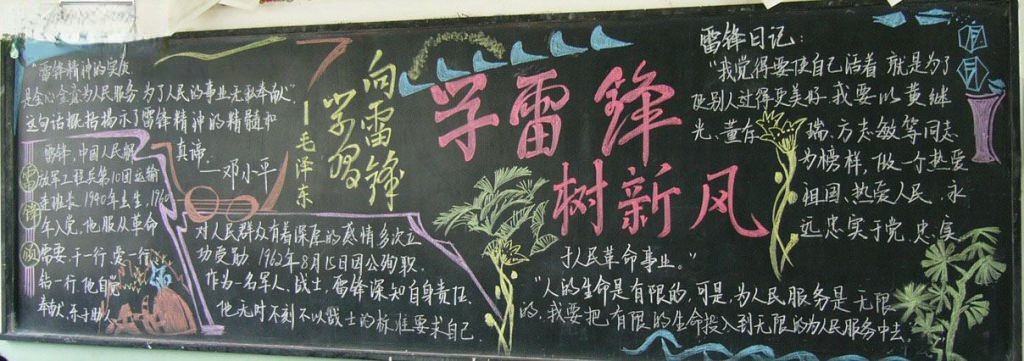 "雷锋精神的实质
是全心全意为人民服务 为了人民的事业无私奉献"
这句话概括揭示了雷锋精神的精髓和
真谛.
—邓小平
雷锋,中国人民解
放军工程兵第10团运输
连班长.1940年出生,1960
年入党.他服从革命
需要,干一行.爱一行
钻一行.他自觉
奉献,乐于助人
对人民群众有着深厚的感情多次立
功受勋 1962年8月15日因公殉职.
作为一名军人.战士,雷锋深知自身责任.
他无时不刻不以战士的标准要求自己.
向雷锋
学习
—毛泽东
学雷锋
树新风
雷锋日记:
"我觉得要使自己活着 就是为了
使别人过得更美好.我要以黄继
光、董存瑞、方志敏等同志
为榜样,做一个热爱
祖国、热爱人民、永
远忠实于党、忠实
于人民革命事业。"
"人的生命是有限的,可是,为人民服务是无限
的,我要把有限的生命投入到无限的为人民服务中去。